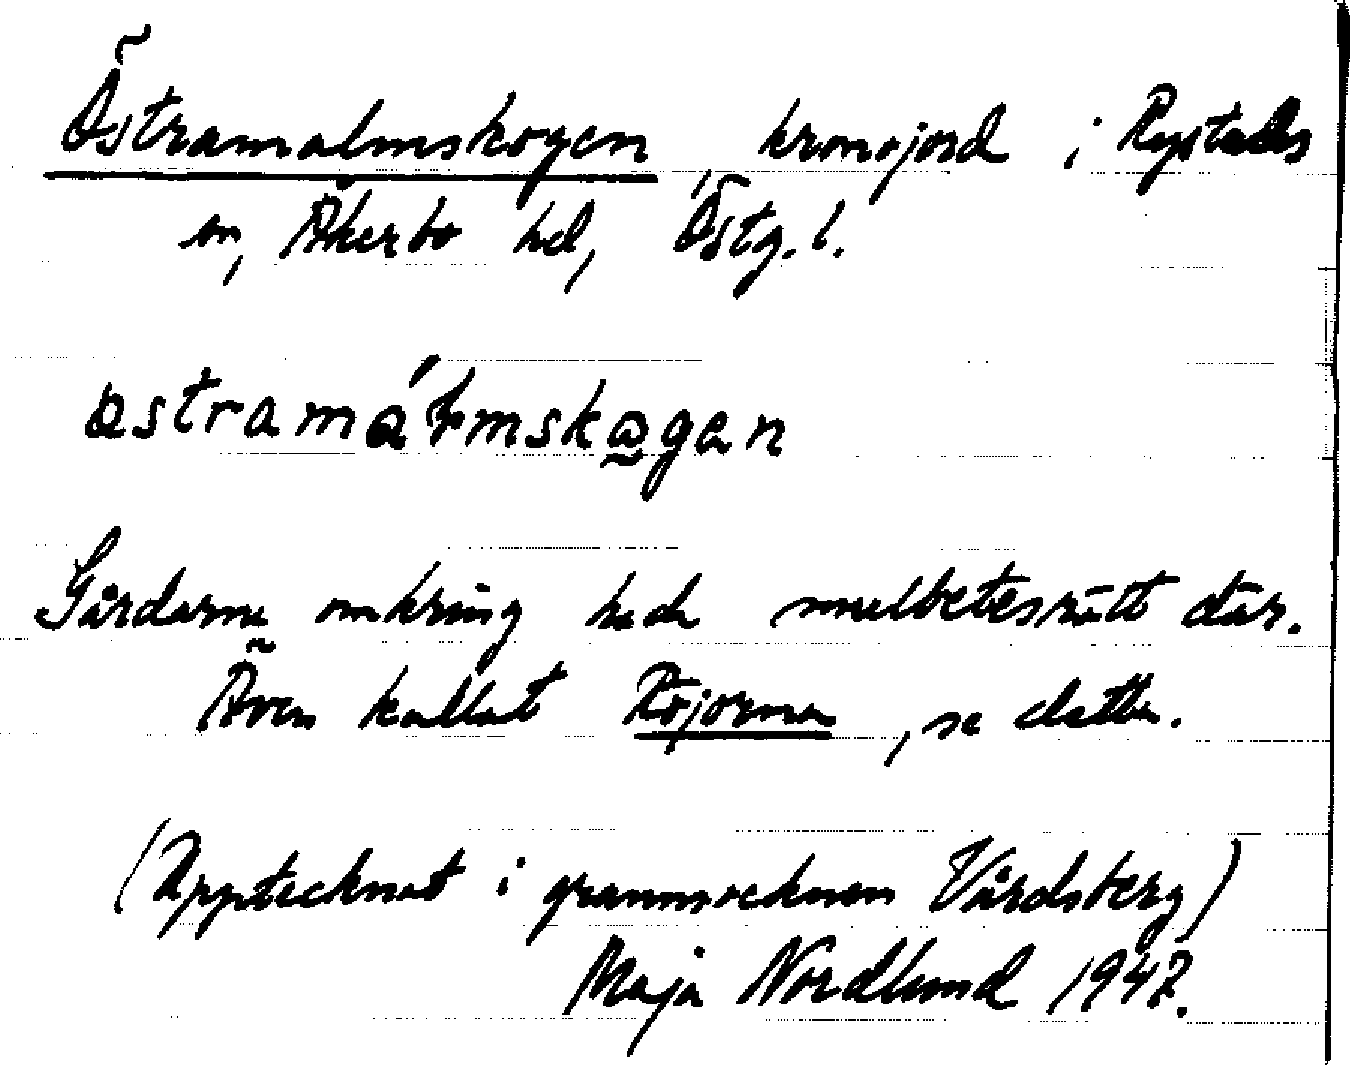 Östramalmskogen kronojord i Rystads
sn, Åkerbo hd, Östg. l.
östramálmskogen
Gårdarna omkring hade mulbetesrätt där.
Även kallat Röjorna, se detta.
(Upptecknat i grannsocknen Vårdsberg)
Maja Nordlund 1947.